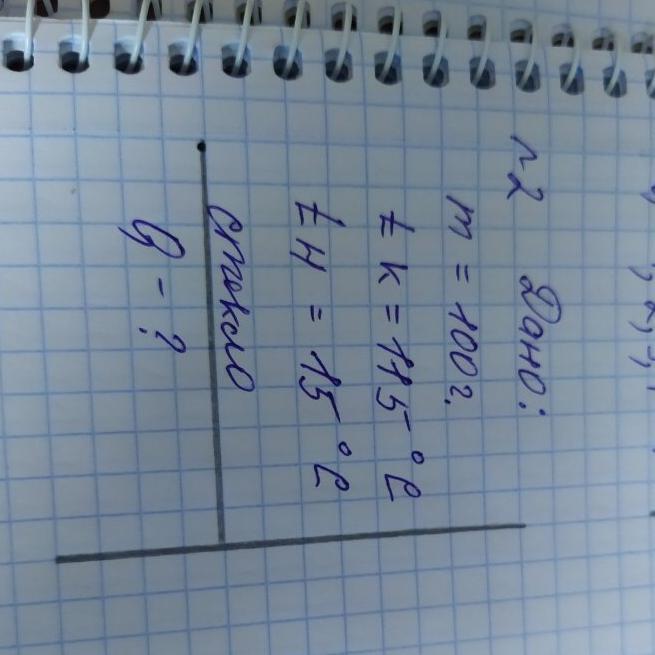 №2 Дано:
m = 100г.
tк = 115°C
tн = 15°C
стекло
Q - ?